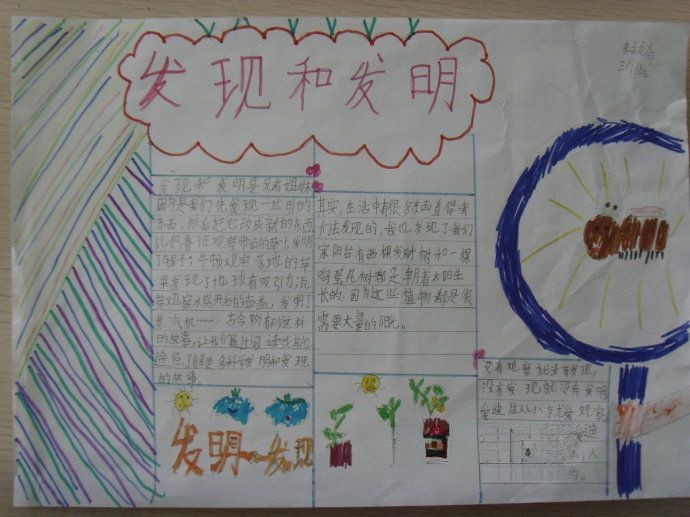 发现和发明
发现和发明是兄弟姐妹
因为是我们先发现一些别的
东西，然后把它改成新的东西
比如鲁班观察带齿的草叶，发明
了锯子；牛顿观察落地的苹
果发现了地球有吸引力，瓦
特观察水烧开后的壶盖，发明了
蒸汽机……古今
的故事，让我们通过阅读或其他
途径，了解更多科学发明和发现
的故事。
其实，生活中有很多东西值得我
们去发现的，我也发现了我们
家阳台有两棵发财树和一棵
鸡蛋花树都是朝着太阳生
长的，因为这些植物都是很
需要大量的阳光。
没有观察就没有发现，
没有发现就没有发明
爱迪生从小方尤爱观察
迪
人
发明 发现